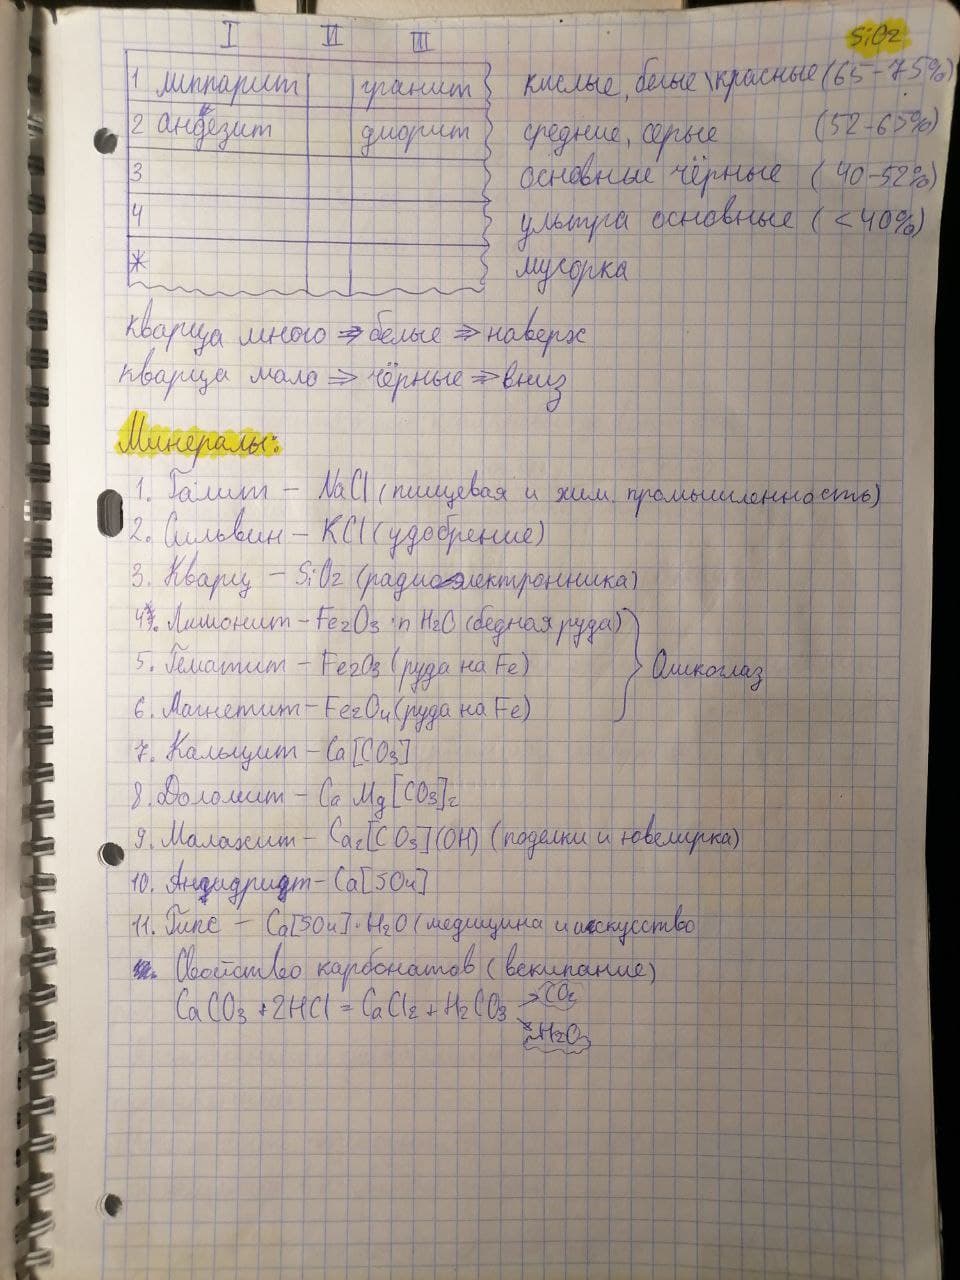 I II III SiO2
1 липпарит гранит кислые, белые\красные (65-75%)
2 андезит диорит средние, серые (52-65%)
3 основные чёрные (40-52%)
4 ультра основные (<40%)
* мусорка
кварца много => белые => наверх
кварца мало => чёрные => вниз
Минералы:
1. Галит - NaCl (пищевая и хим. промышленность)
2. Сильвин - KCl (удобрение)
3. Кварц - SiO2 (радиоэлектронника)
4. Лимонит - Fe2O3 · n H2O (бедная руда)
5. Гематит - Fe2O3 (руда на Fe) Ошкоглаз
6. Магнетит - Fe2O4 (руда на Fe)
7. Кальцит - Ca[CO3]
8. Доломит - Ca Mg[CO3]2
9. Малахит - Ca2[CO3](OH) (поделки и ювелирка)
10. Ангидридт - Ca[SO4]
11. Гипс - Ca[SO4]·H2O (медицина и искусство
Свойство карбонатов (векипание)
CaCO3 + 2HCl = CaCl2 + H2CO3 → CO2
→ H2O